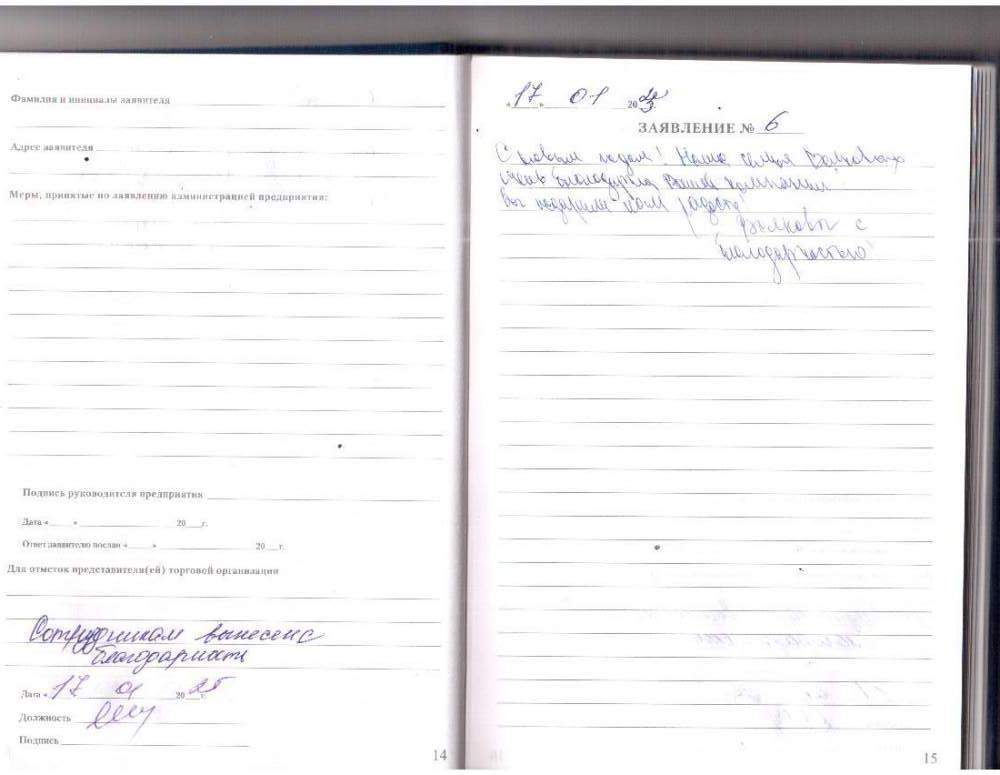 Фамилия и инициалы заявителя
Адрес заявителя
Меры, принятые по заявлению администрацией предприятия:
Подпись руководителя предприятия
Дата « » 20 г.
Ответ заявителю послан « » 20 г.
Для отметок представителя(ей) торговой организации
Сотрудникам вынесена
благодарность
Дата « 17 01 20 25 г.
Должность
Подпись
14
«17» 01 20
ЗАЯВЛЕНИЕ № 6
С новым годом! Наша семья Волковых
очень благодарна Вашей компании
Вы подарили нам радость!
Волковы с
благодарностью
15